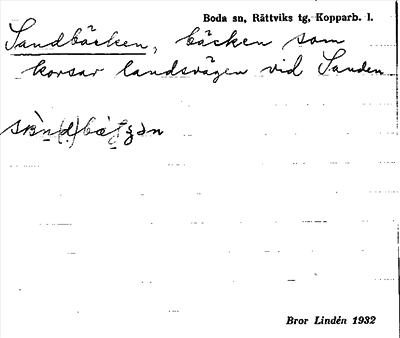 Boda sn, Rättviks tg, Kopparb. l.
Sandbäcken, bäcken som
korsar landsvägen vid Sanden
Bror Lindén 1932